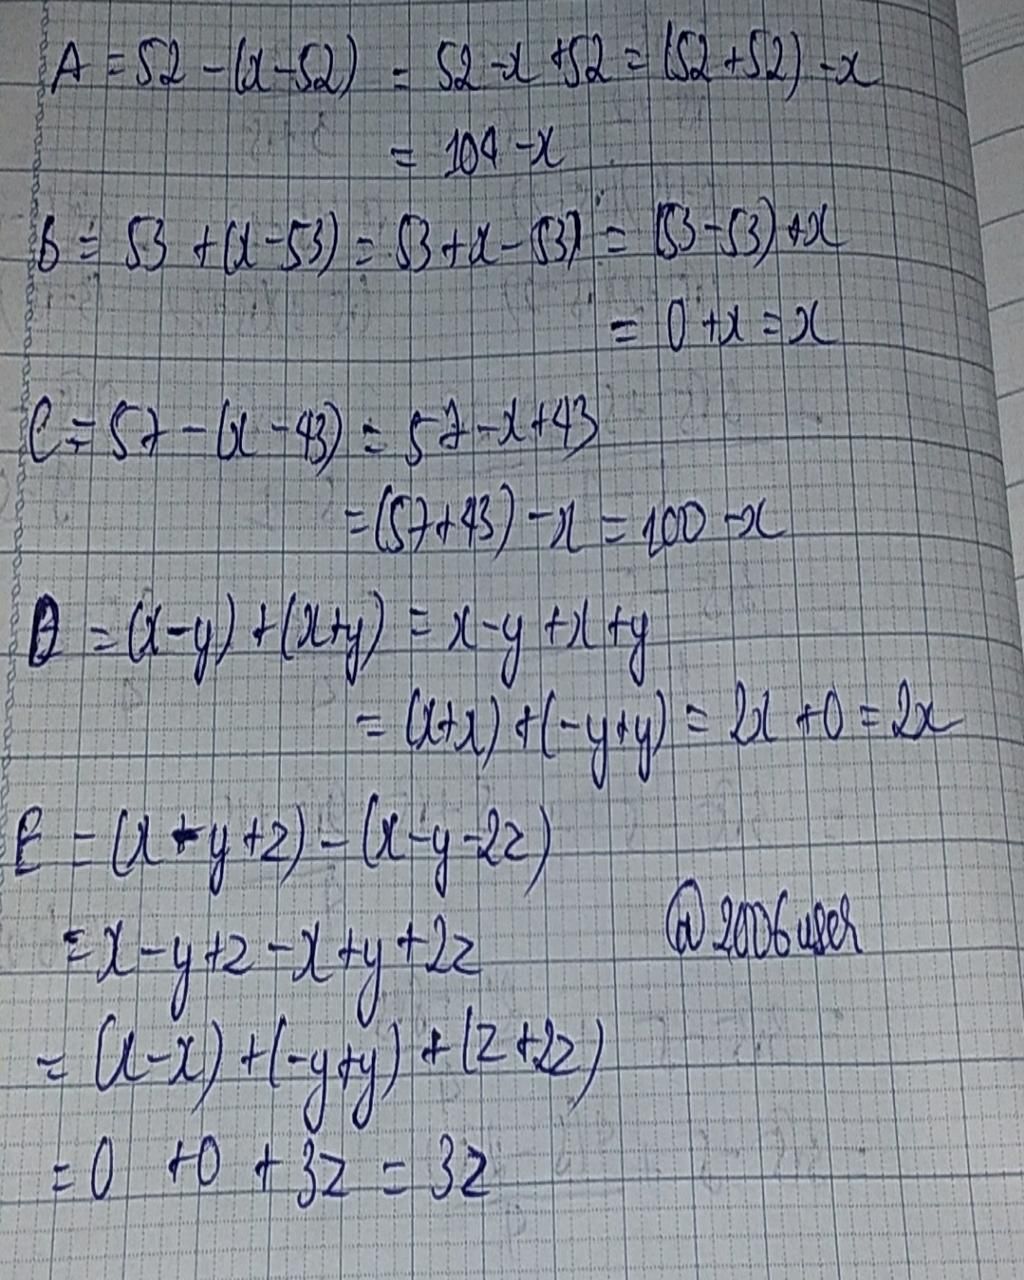 A = 52 - (x - 52) = 52 - x + 52 = (52 + 52) - x
= 104 - x
B = 53 + (x - 53) = 53 + x - 53) = (53 - 53) + x
= 0 + x = x
C = 57 - (x - 43) = 57 - x + 43
= (57 + 43) - x = 100 - x
D = (x - y) + (x + y) = x - y + x + y
= (x + x) + (-y + y) = 2x + 0 = 2x
E = (x - y + z) - (x - y - 2z)
= x - y + z - x + y + 2z
@2006user
= (x - x) + (-y + y) + (z + 2z)
= 0 + 0 + 3z = 3z